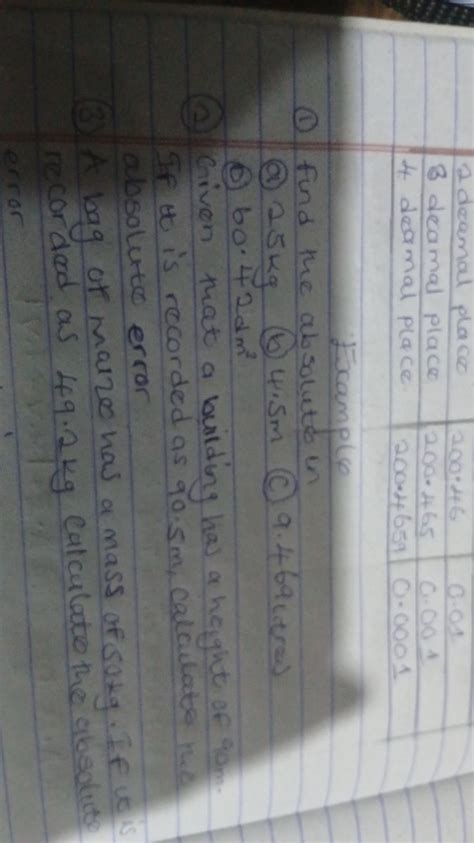 2 decimal place 200.46 0.01
3 decimal place 200.465 0.001
4 decimal place 200.4659 0.0001
Example
① find the absolute in
ⓐ 25kg ⓑ 4.5m ⓒ 9.46litres
60.42dm³
② Given that a building has a height of 90m.
If it is recorded as 90.5m, calculate the
absolute error
③ A bag of maize has a mass of 50kg. If it is
recorded as 49.2kg calculate the absolute
error